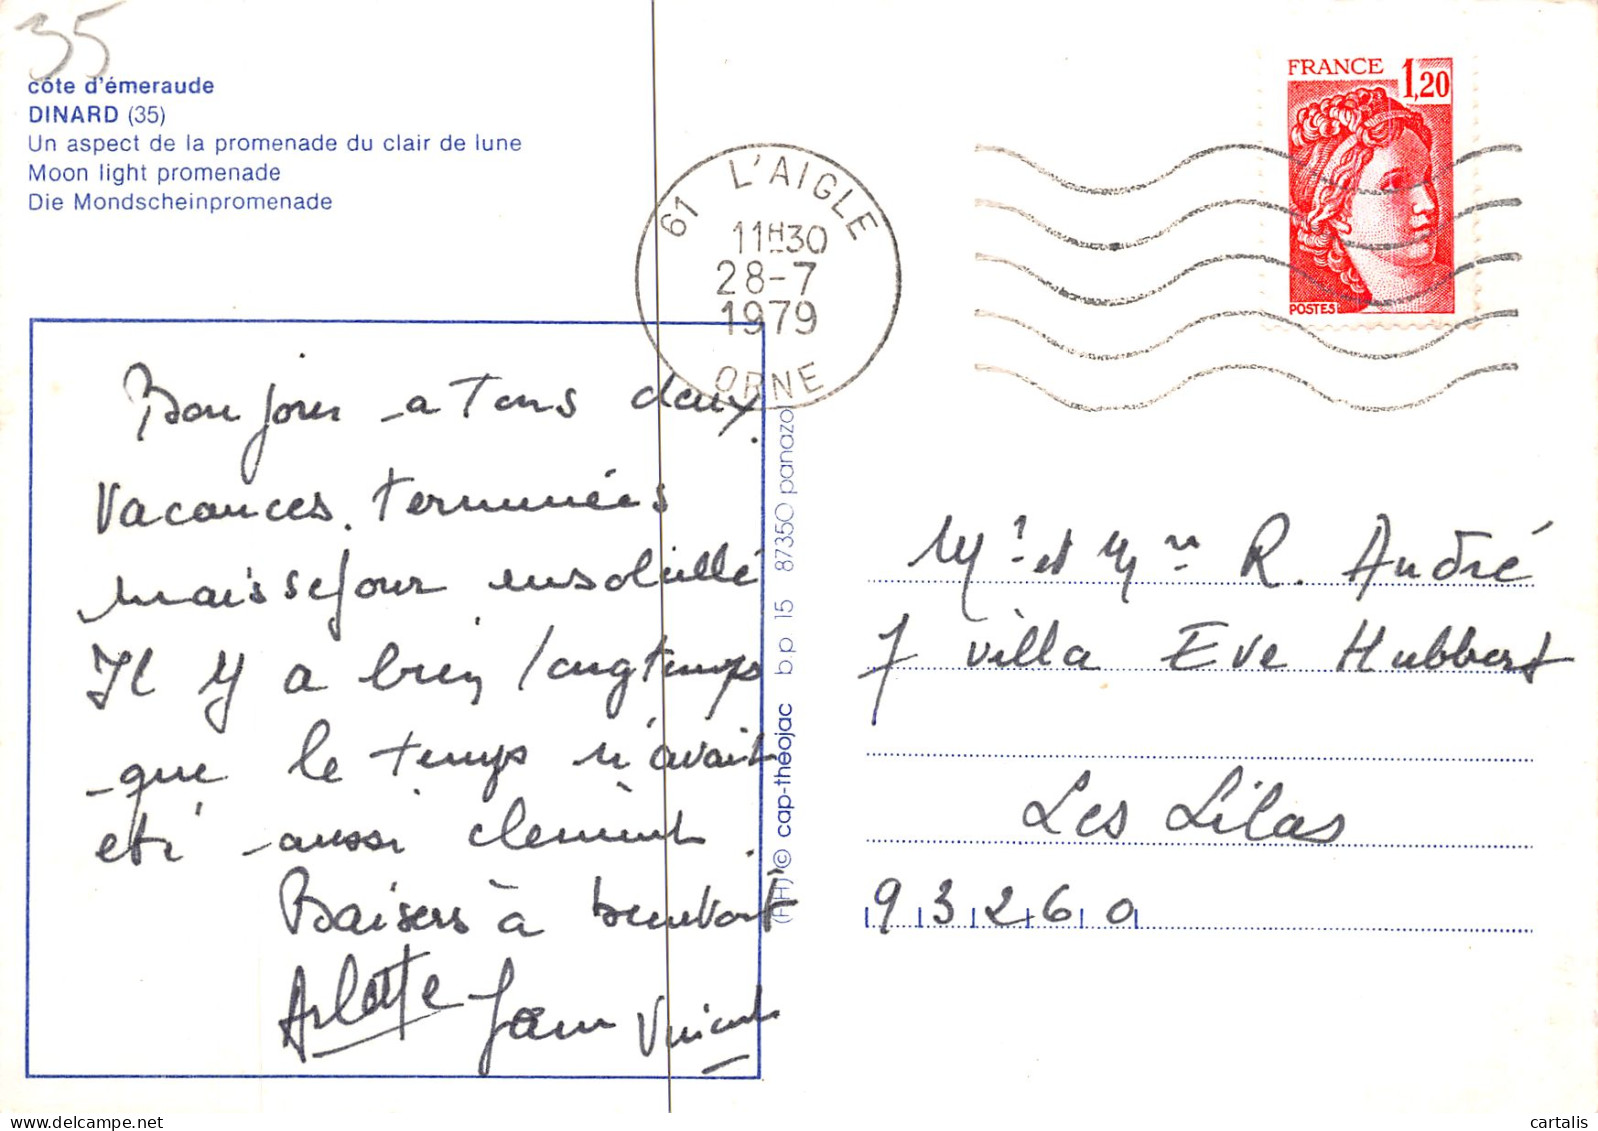 35
côte d'émeraude
DINARD (35)
Un aspect de la promenade du clair de lune
Moon light promenade
Die Mondscheinpromenade
61 L'AIGLE
11H30
28-7
1979
ORNE
FRANCE 1,20
POSTES
Bonjour a Tous deux.
Vacances. Terminées
mais sejour ensoleillé
Il y a bien longtemps
que le temps n'avait
eté aussi clément.
Baisers à
Arlette Jean Vincent
(RH) © cap-théojac b.p 15 87350 panazol
Mr et Mme R. André
7 villa Eve Hubbert
Les Lilas
93260
cartalis